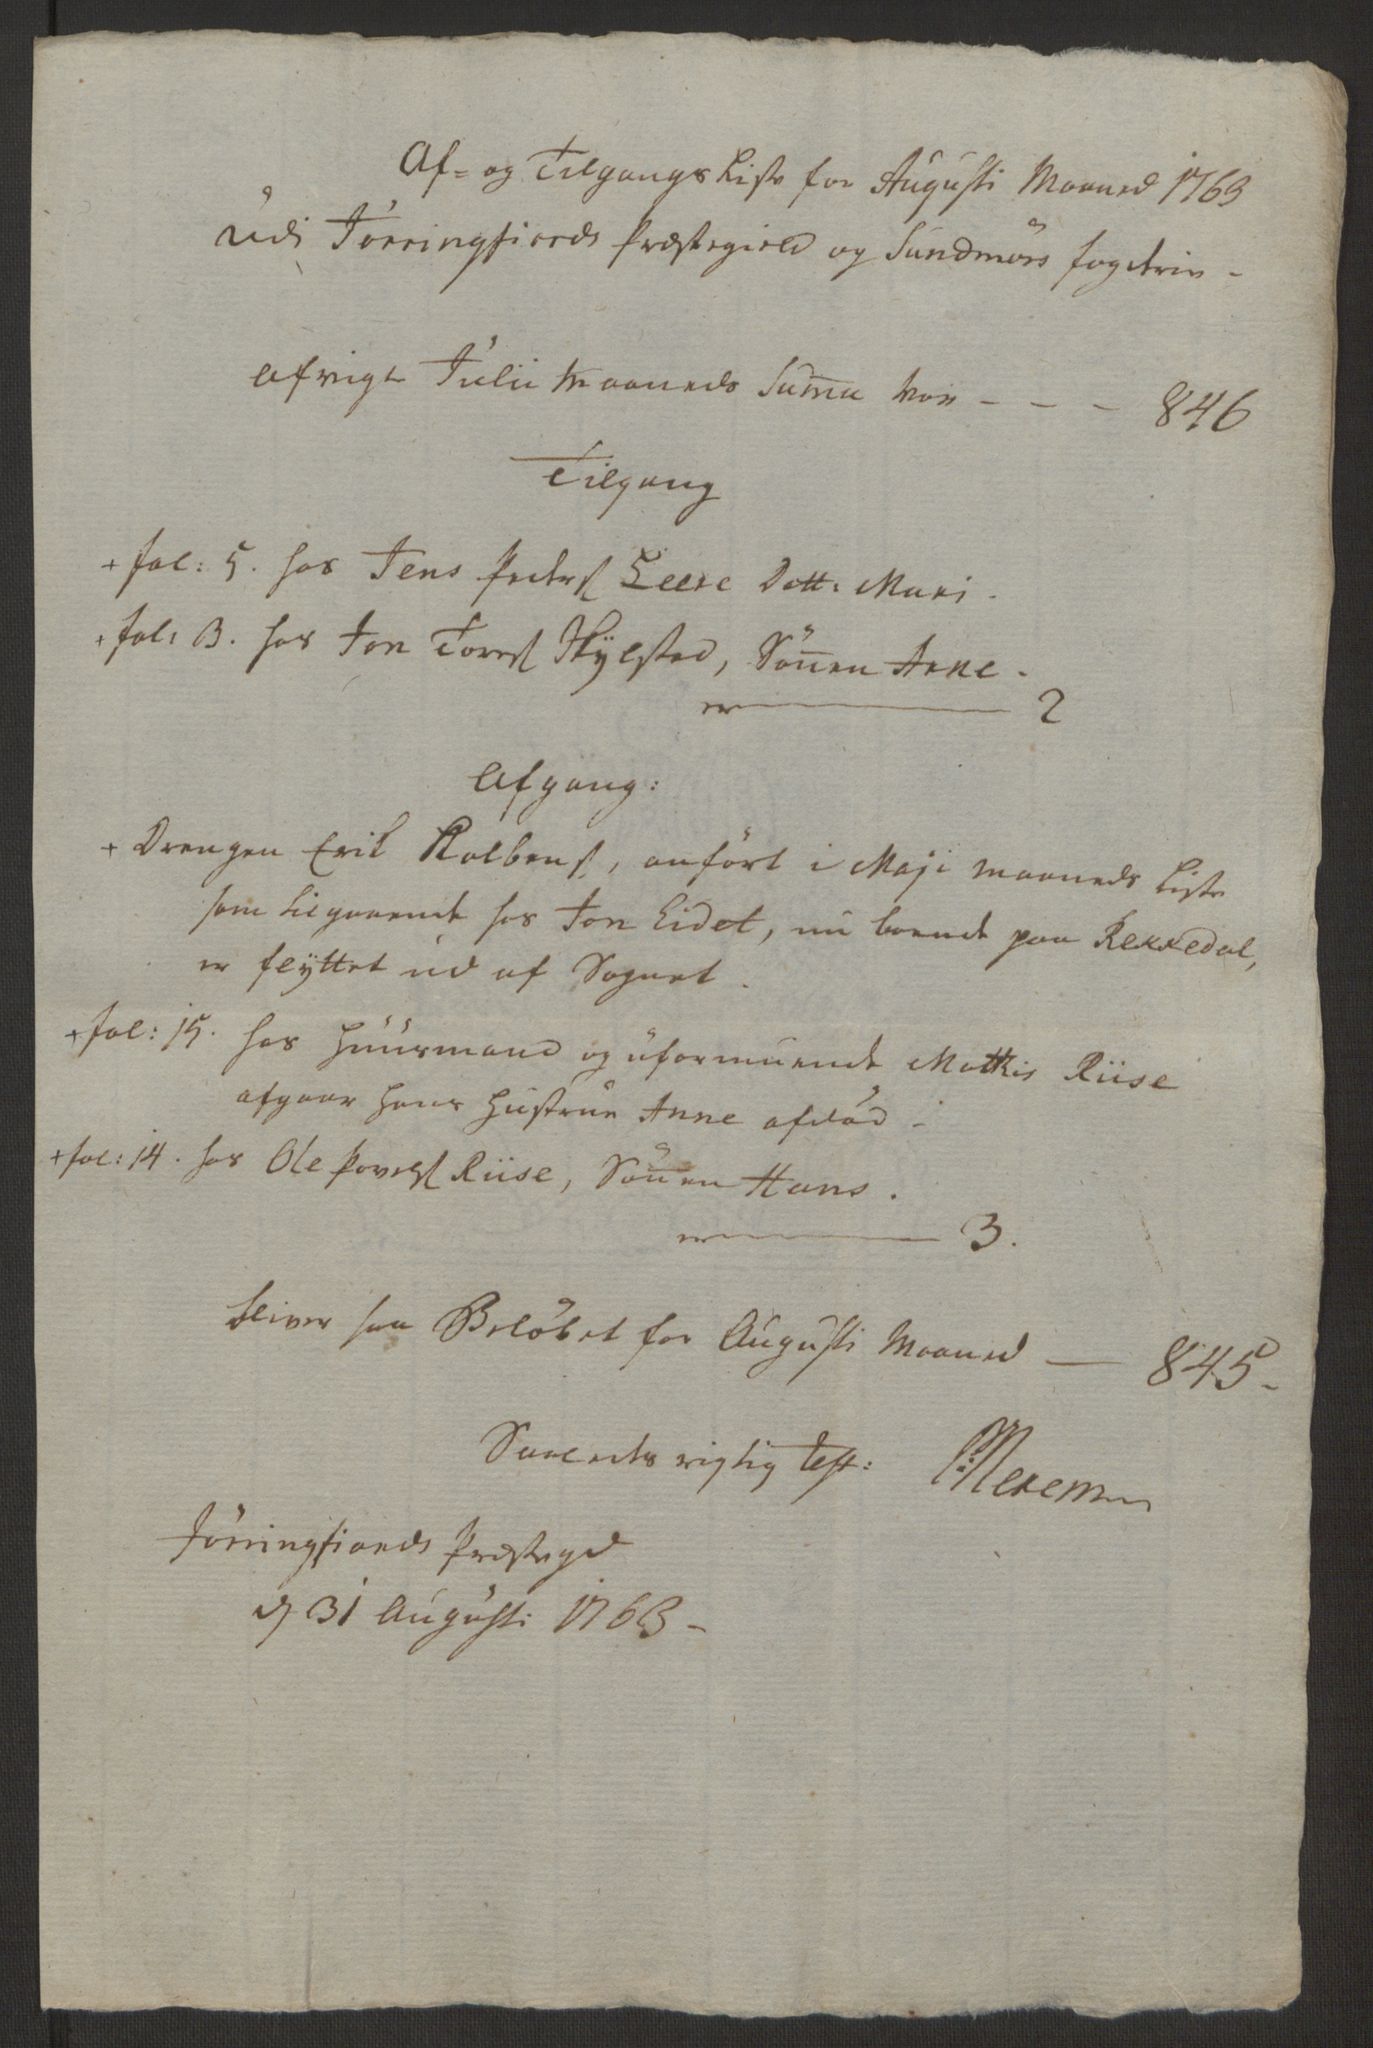 Af= og Tilgangs Liste for Augusti Maaned 1763
udi Jörringfiords Præstegield og Sundmörs fogderie -
Afvigte Julii Maaneds Suma var - - - 846
Tilgang
+ fol: 5. hos Jens Peders Leere Dott: Mari.
+ fol: 3. hos Jon Tores Hÿlsted, Sönen Arne.
er 2
Afgang:
+ Drengen Erik Kolbens, anfört i Maji Maaneds Liste
som tilgaaende hos Jon Eidet, nu boende paa Rekkedal,
er flÿttet ud af Sognet.
+ fol: 15. hos Huusmand og uformuende Mathis Riise
afgaar hans Hustrue Anne afdöd.
+ fol: 14. hos Ole Povels Riise, Sönen Hans.
er 3.
bliver saa Belöbet for Augusti Maaned — 845.
Saaledes rigtig test:
Jörringfiords Præstegd
d 31 Augusti 1763 -